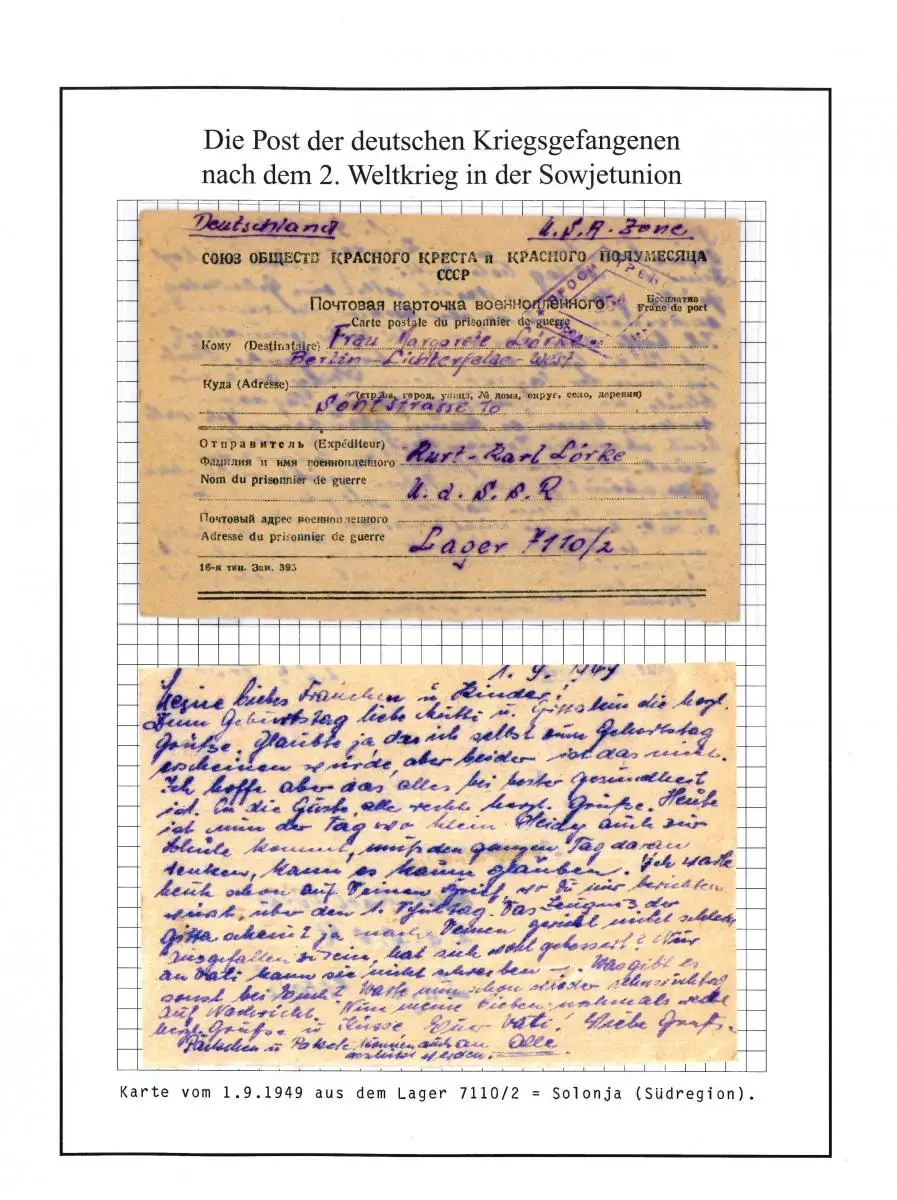 Die Post der deutschen Kriegsgefangenen
nach dem 2. Weltkrieg in der Sowjetunion
Deutschland U.S.A-Zone
СОЮЗ ОБЩЕСТВ КРАСНОГО КРЕСТА и КРАСНОГО ПОЛУМЕСЯЦА
СССР
Почтовая карточка военнопленного
Бесплатно
Franc de port
Carte postale du prisonnier de guerre
Кому (Destinataire) Frau Margarete Lörke
Berlin-Lichterfelde-West
Куда (Adresse)
(страна, город, улица, № дома, округ, село, деревня)
10
Отправитель (Expéditeur)
Фамилия и имя военнопленного Kurt-Karl Lörke
Nom du prisonnier de guerre
U.d.S.S.R
Почтовый адрес военнопленного
Adresse du prisonnier de guerre Lager 7110/2
16-я тип. Зак. 395
1.9.1949
Meine liebes Frauchen u Kinder!
Zum Geburtstag liebe Mutti u. die herzl.
Grüße. Glaubte ja das ich selbst zum Geburtstag
erscheinen würde, aber leider ist das nicht.
Ich hoffe aber das alles bei bester gesundheit
ist. die Gäste alle recht herzl. Grüße. Heute
ist nun der Tag wo klein Heidy auch zur
Schule kommt, muß den ganzen Tag daran
denken, kann es kaum glauben. Ich warte
heute schon auf Deinen Brief, wo Du mir berichten
wirst, über den 1. Schultag. Das Zeugnis der
Gitta scheint ja nach Deinen nicht schlecht
ausgefallen zu sein, hat sich wohl gebessert? Nur
an Vati kann sie nicht schreiben –. Was gibt es
sonst bei Euch? Warte nun schon wieder sehnsüchtig
auf Nachricht. Nun meine Lieben nochmals recht
herzl. Grüße u Küsse Euer Vati!
Päckchen u Pakete können auch an Alle
geschickt werden.
Karte vom 1.9.1949 aus dem Lager 7110/2 = Solonja (Südregion).